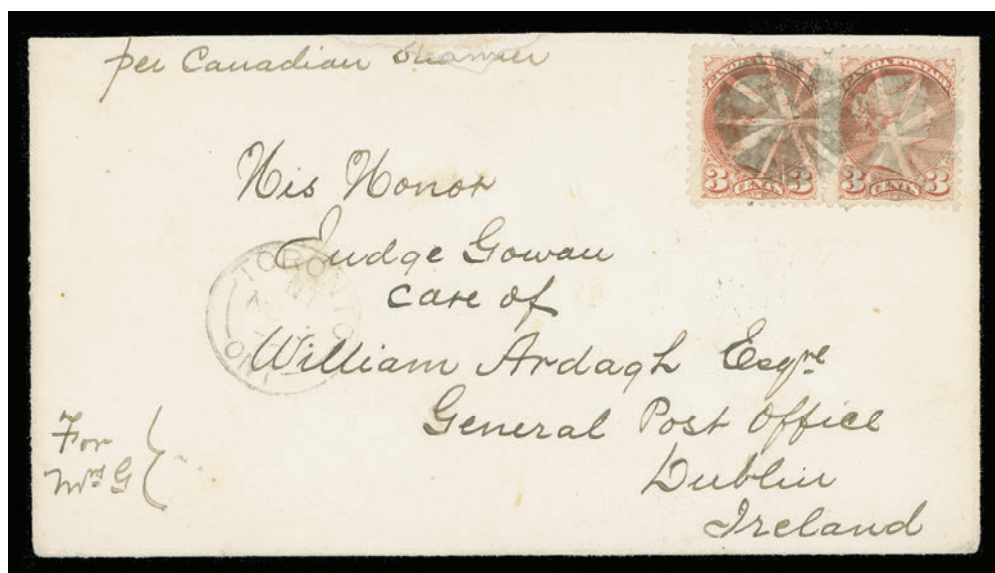 per Canadian Steamer
CANADA POSTAGE
CANADA POSTAGE
3 CENTS 3
3 CENTS 3
His Honor
Judge Gowan
care of
William Ardagh Esqre
General Post Office
Dublin
Ireland
TORONTO
ONT
For
Mrs G